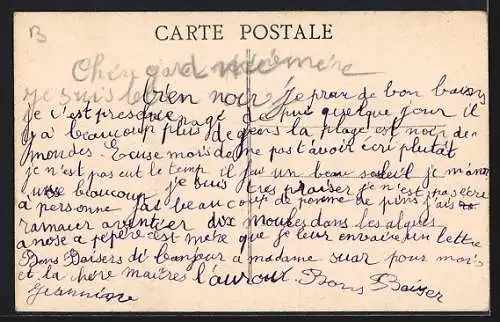 B
CARTE POSTALE
Chère gard mémère
Je suis bien noir je prar de bon bains
je c'est presque nagé de puis quelque jour il
y a beaucoup plus de gens la plage est noir de
mondes. Ecuse mois de ne pas t'avoir écri plutât
je n'est pas eut le temp il fai un beau soleil je m'amu
use beaucoup je suis très plaiser je n'est pas écri
a personne jai beaucoup de pomme de pins j'ais
ramaser avantier dix moules dans les algues
a pépère est mère que je leur envaire un lettre
Bons Baisers di banjour a madame suar pour mois
et la chère maitres l'auroux Bons Baiser
Jeannine